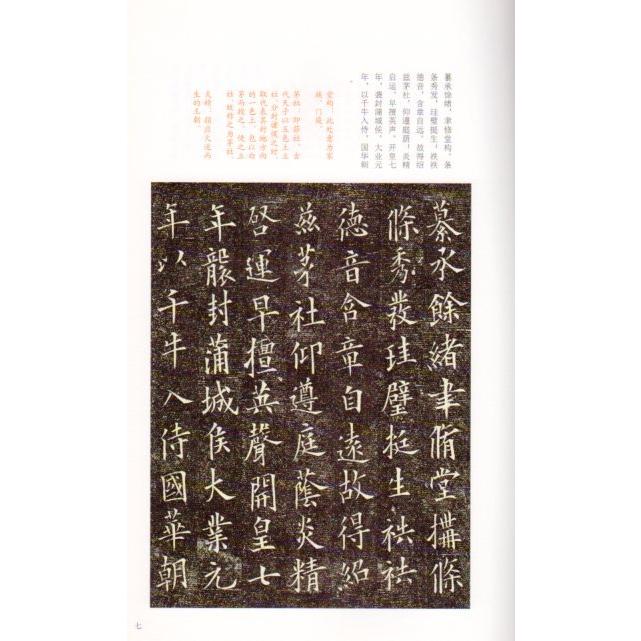 纂承馀绪，聿修堂构。条
条秀发，珪璧挺生，袟袟
德音，含章自远。故得绍
兹茅社，仰遵庭荫。炎精
启运，早擅英声。开皇七
年，袭封蒲城侯。大业元
年，以千牛入侍。国华朝
堂构：此处意为家
族、门庭。
茅社：古
代天子以五色土立
社，分封诸侯之时，
取代表其封地方向
的一色土，包以白
茅而授之，使之立
社，故称之为茅社。
炎精：指应火运而
生的王朝。
纂承餘緒聿脩堂構條
條秀發珪璧挺生袟袟
德音含章自遠故得紹
茲茅社仰遵庭蔭炎精
啓運早擅英聲開皇七
年襲封蒲城侯大業元
年以千牛入侍國華朝
七